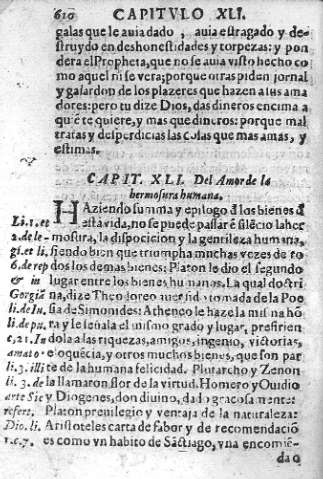 610 CAPITVLO XLI.
galas que le auia dado, auia estragado y de-
struydo en deshonestidades y torpezas: y pon
dera el Propheta, que no se auia visto hecho co
mo aquel ni se vera; porque otras piden jornal
y galardon de los plazeres que hazen a sus ama
dores: pero tu dize Dios, das dineros encima a
quiẽ te quiere, y mas que dineros: porque mal
tratas y desperdicias las cosas que mas amas, y
estimas.
CAPIT. XLI. Del Amor de la
hermosura humana.
HAziendo summa y epilogo ď los bienes ď
Li. 1. et esta vida, no se puede passar ẽ silẽcio la her
2. de le- mosura, la disposicion y la gentileza humana,
gi. et li, siendo bien que triumpha muchas vezes de to
6. de rep dos los demas bienes: Platon le dio el segundo
& in lugar entre los bienes humanos. La qual doctri
Gorgia na, dize Theodoreo auer sido tomada de la Poe
li. de In, sia de Simonides: Atheneo le haze la misma hõ
li. de pu. ra y le señala el mismo grado y lugar, prefirien
c, 21. In dola a las riquezas, amigos, ingenio, victorias,
amato. eloquẽcia, y otros muchos bienes, que son par
li. 3. illi te de la humana felicidad. Plutarcho y Zenon
li. 3. de la llamaron flor de la virtud. Homero y Ouidio
arte Sic y Diogenes, don diuino, dado graciosamente:
refert. Platon preuilegio y ventaja de la naturaleza:
Dio. li. Aristoteles carta de fabor y de recomendaciõ
1. c. 7. es como vn habito de Sãctiago, vna encomiẽ-
da o